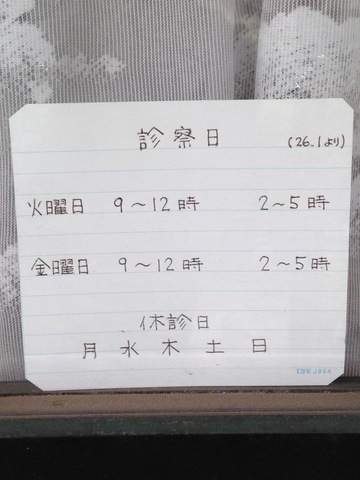 診察日 (26.1より)
火曜日 9〜12時 2〜5時
金曜日 9〜12時 2〜5時
休診日
月 水 木 土 日
LIFE J854